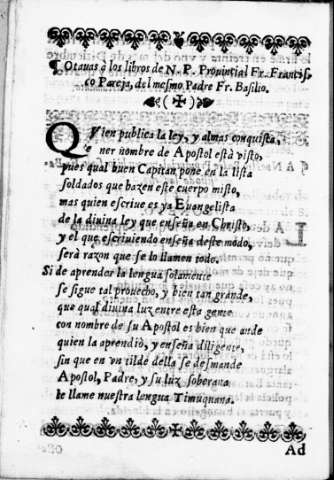 ¶ Otauas à los libros de N. P. Prouincial Fr. Francis
co Pareja, del mesmo Padre Fr. Basilio.
QVien publica la ley, y almas conquista,
e ner nombre de Apostol està visto,
pues qual buen Capitan pone en la lista
soldados que hazen este cuerpo misto,
mas quien escriue es ya Euangelista
de la diuina ley que enseña en Christo,
y el que escriuiendo enseña deste modo,
serà razon que se lo llamen todo.
Si de aprender la lengua solamente
se sigue tal prouecho, y bien tan grande,
que qual diuina luz entre esta gente
con nombre de su Apostol es bien que ande
quien la aprendiò, y enseña diligente,
sin que en vn tilde della se desmande
Apostol, Padre, y su luz soberana
le llame nuestra lengua Timuquana.
Ad